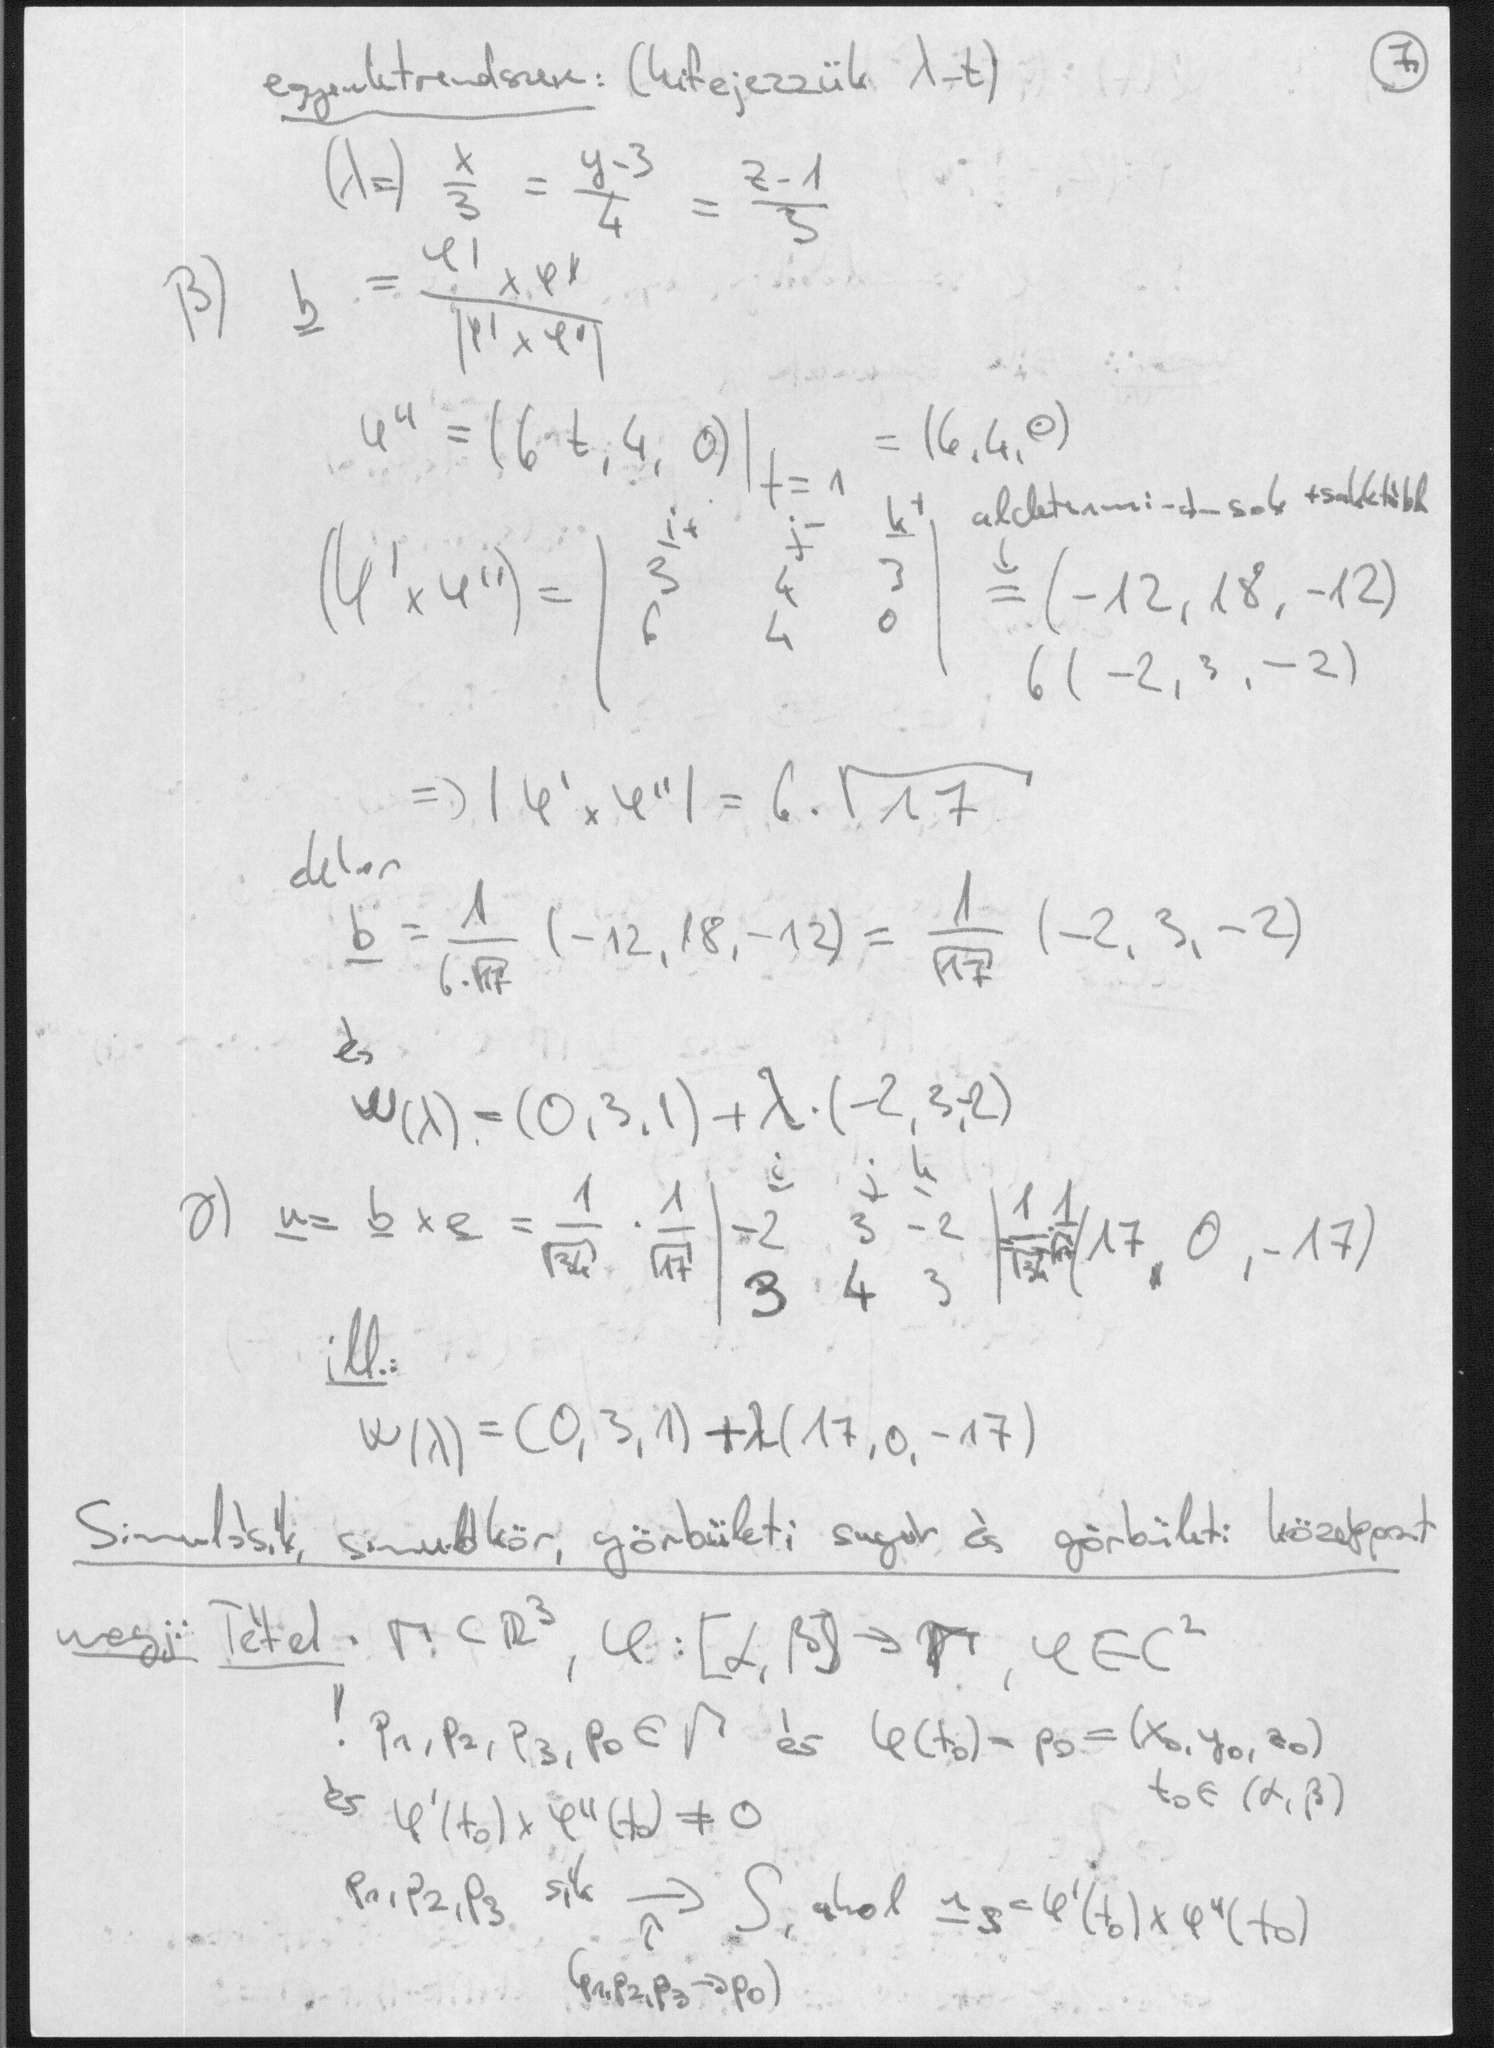 7.
egyenletrendszere: (kifejezzük λ-t)
(λ=) x/3 = (y-3)/4 = (z-1)/3
β) b = (φ' × φ'')/|φ' × φ''|
φ'' = (6t, 4, 0)|t=1 = (6, 4, 0)
(φ' × φ'') = | i+ j- k+ | aldetermi-á-sok +sakktábla
| 3 4 3 | = (-12, 18, -12)
| 6 4 0 |
6(-2, 3, -2)
⇒ |φ' × φ''| = 6·√17
b = 1/(6·√17) (-12, 18, -12) = 1/√17 (-2, 3, -2)
és
w(λ) = (0, 3, 1) + λ·(-2, 3, -2)
γ) n = b × e = 1/√34 · 1/√17 | i j k; -2 3 -2; 3 4 3 | = 1/√34 · 1/√17 (17, 0, -17)
ill.:
w(λ) = (0, 3, 1) + λ(17, 0, -17)
Simulósík, simulókör, görbületi sugár és görbületi középpont
megj: Tétel. Γ ⊂ R³, φ: [α, β] → Γ, φ ∈ C²
! p₁, p₂, p₃, p₀ ∈ Γ és φ(t₀) = p₀ = (x₀, y₀, z₀)
t₀ ∈ (α, β)
és φ'(t₀) × φ''(t₀) ≠ 0
p₁, p₂, p₃ sík → S, ahol n_S = φ'(t₀) × φ''(t₀)
↑
(p₁, p₂, p₃ → p₀)